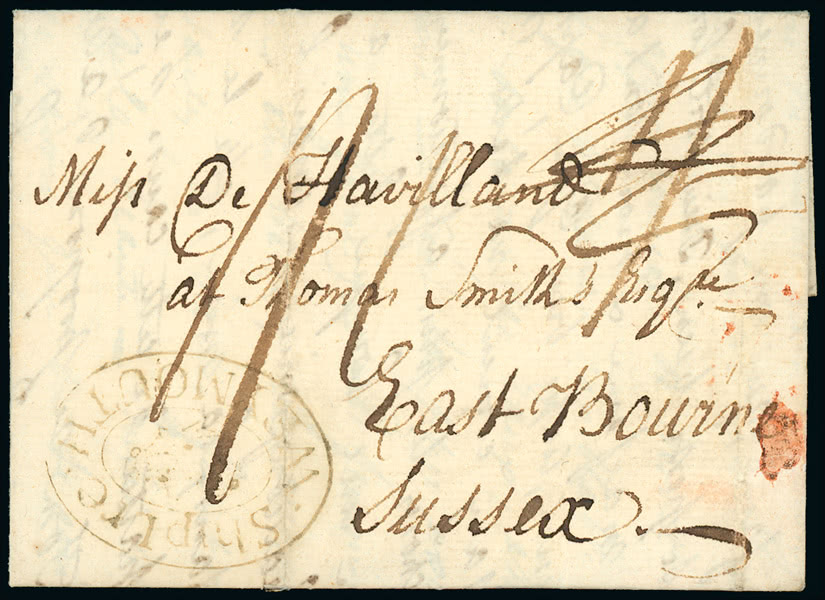 Miſs De Havilland
at Thomas Smith's Esqre.
East Bourne
Sussex.
WEYMOUTH · SHIP Lre